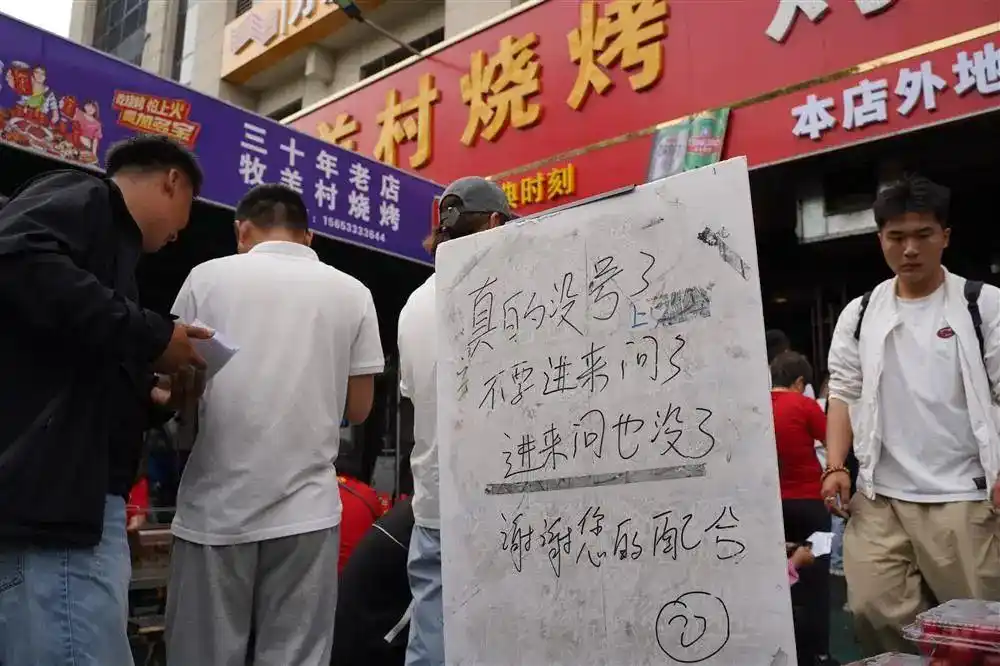 羊村烧烤
本店外地
典时刻
三十年老店
牧羊村烧烤
15653333644
真的没号了
不要进来问了
进来问也没了
谢谢您的配合